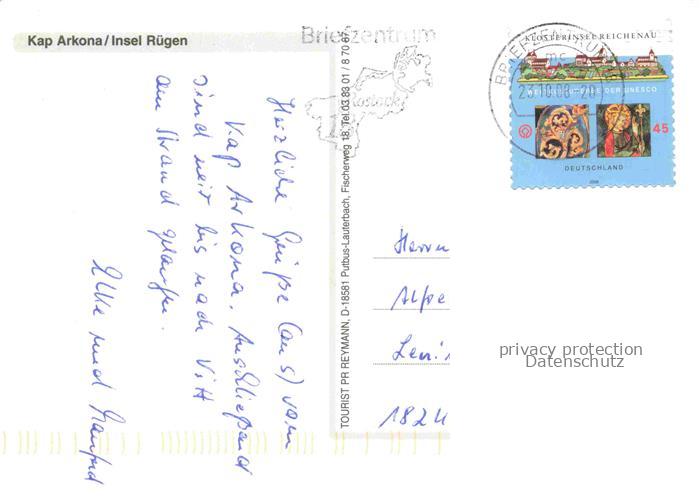 Kap Arkona / Insel Rügen
Briefzentrum
Rostock
Herzliche Grüße (aus) vom
Kap Arkona. Anschließend
sind wir bis nach Vitt
am Strand gelaufen.
Elke und Manfred
TOURIST PR REYMANN, D-18581 Putbus-Lauterbach, Fischerweg 18, Tel. 03 83 01 / 8 70 67
BRIEFZENTRUM
mc
KLOSTERINSEL REICHENAU
WELTKULTURERBE DER UNESCO
45
DEUTSCHLAND
2008
Herrn
Alfre
privacy protection
Datenschutz
182